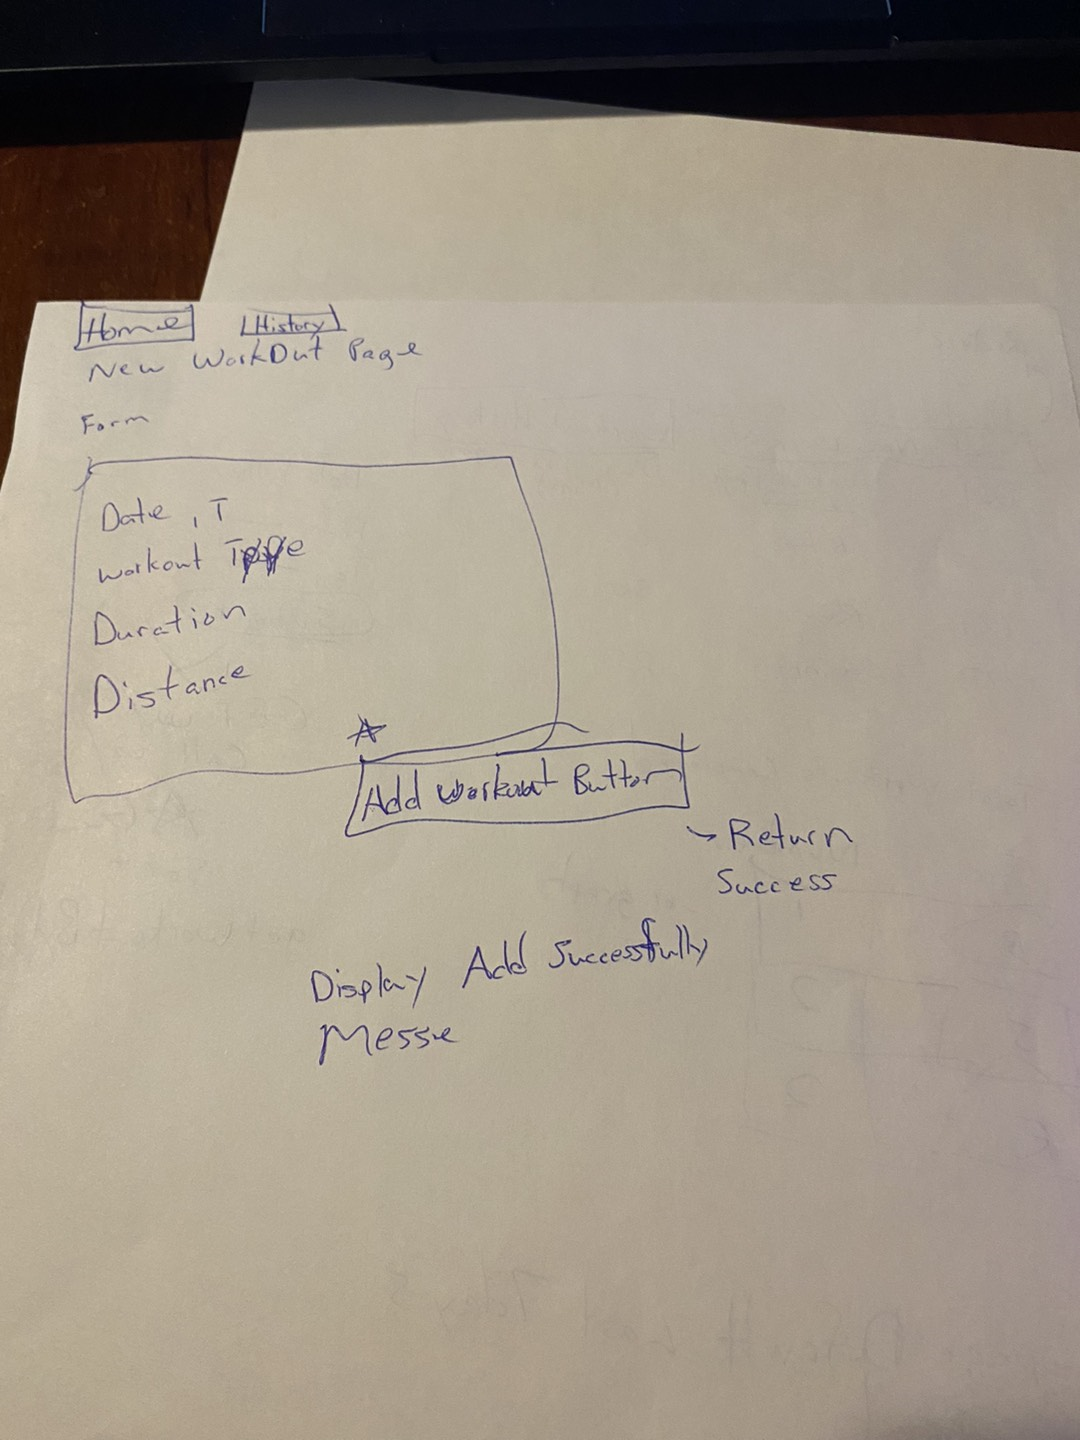 Home History
New WorkOut Page
Form
Date , T
Workout Type
Duration
Distance
Add Workout Button
Return
Success
Display Add Successfully
Messe